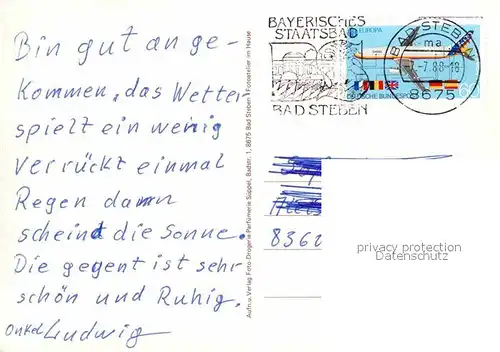 Bin gut an ge-
kommen, das Wetter
spielt ein wenig
verrückt einmal
Regen dann
scheint die Sonne.
Die gegent ist sehr
schön und Ruhig.
Onkel Ludwig
Aufn. u. Verlag Foto-Drogerie-Parfümerie Süppel, Badstr. 1, 8675 Bad Steben 1 Fotoatelier im Hause
BAYERISCHES
STAATSBAD
BAD STEBEN
EUROPA
60
DEUTSCHE BUNDESPOST
BAD STEBEN
ma
-7.88-18
8675
8362
privacy protection
Datenschutz